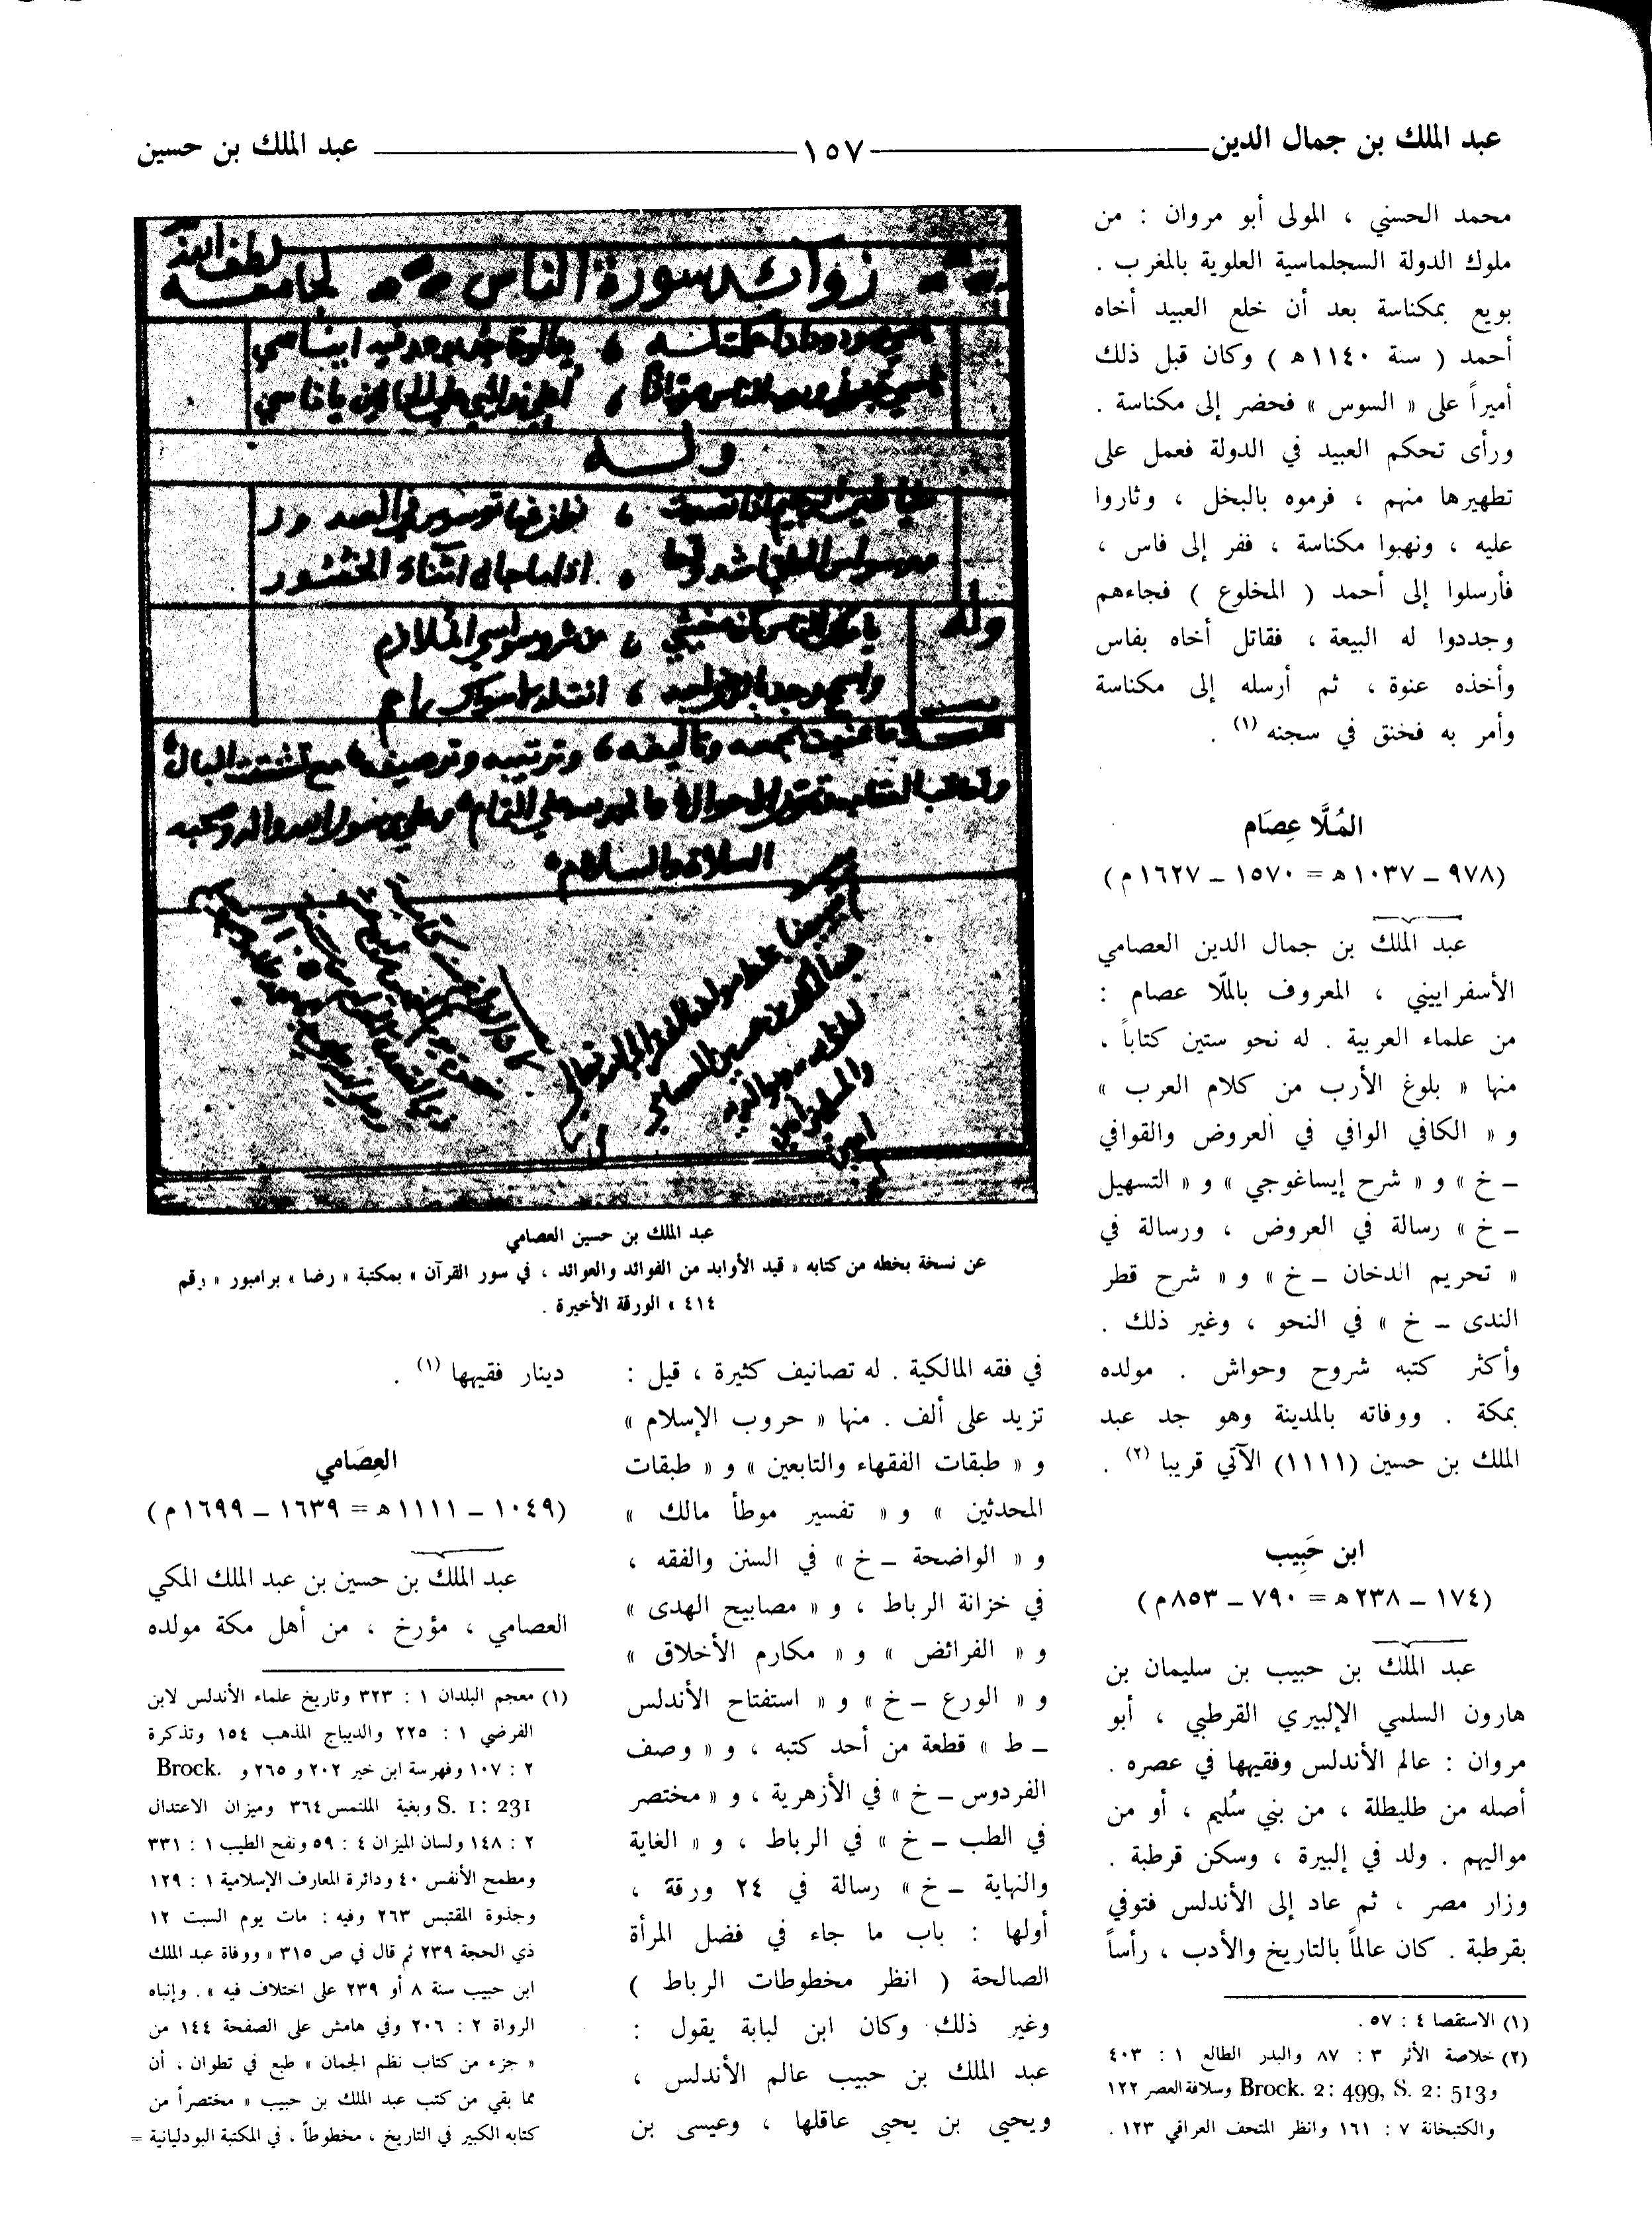 عبد الملك بن جمال الدين ـــ ١٥٧ ـــ عبد الملك بن حسين
محمد الحسني ، المولى أبو مروان : من
ملوك الدولة السجلماسية العلوية بالمغرب .
بويع بمكناسة بعد أن خلع العبيد أخاه
أحمد ( سنة ١١٤٠ هـ ) وكان قبل ذلك
أميراً على « السوس » فحضر إلى مكناسة .
ورأى تحكم العبيد في الدولة فعمل على
تطهيرها منهم ، فرموه بالبخل ، وثاروا
عليه ، ونهبوا مكناسة ، ففر إلى فاس ،
فأرسلوا إلى أحمد ( المخلوع ) فجاءهم
وجددوا له البيعة ، فقاتل أخاه بفاس
وأخذه عنوة ، ثم أرسله إلى مكناسة
وأمر به فخنق في سجنه (١) .
المُلَّا عِصَام
(٩٧٨ ــ ١٠٣٧ هـ = ١٥٧٠ ــ ١٦٢٧ م)
عبد الملك بن جمال الدين العصامي
الأسفراييني ، المعروف بالملّا عصام :
من علماء العربية . له نحو ستين كتاباً ،
منها « بلوغ الأرب من كلام العرب »
و « الكافي الوافي في العروض والقوافي
ــ خ » و « شرح إيساغوجي » و « التسهيل
ــ خ » رسالة في العروض ، ورسالة في
« تحريم الدخان ــ خ » و « شرح قطر
الندى ــ خ » في النحو ، وغير ذلك .
وأكثر كتبه شروح وحواش . مولده
بمكة . ووفاته بالمدينة وهو جد عبد
الملك بن حسين (١١١١) الآتي قريبا (٢) .
ابن حَبِيب
(١٧٤ ــ ٢٣٨ هـ = ٧٩٠ ــ ٨٥٣ م)
عبد الملك بن حبيب بن سليمان بن
هارون السلمي الإلبيري القرطبي ، أبو
مروان : عالم الأندلس وفقيهها في عصره .
أصله من طليطلة ، من بني سُليم ، أو من
مواليهم . ولد في إلبيرة ، وسكن قرطبة .
وزار مصر ، ثم عاد إلى الأندلس فتوفي
بقرطبة . كان عالماً بالتاريخ والأدب ، رأساً
(١) الاستقصا ٤ : ٥٧ .
(٢) خلاصة الأثر ٣ : ٨٧ والبدر الطالع ١ : ٤٠٣
و Brock. 2: 499, S. 2: 513 وسلافة العصر ١٢٢
والكتبخانة ٧ : ١٦١ وانظر المتحف العراقي ١٢٣ .
زوائد سورة الناس لجامعه لطف الله
وله
وله
السلاة والسلام
عبد الملك بن حسين العصامي
عن نسخة بخطه من كتابه « قيد الأوابد من الفوائد والعوائد ، في سور القرآن » بمكتبة « رضا » برامبور « رقم
٤١٤ » الورقة الأخيرة .
في فقه المالكية . له تصانيف كثيرة ، قيل :
تزيد على ألف . منها « حروب الإسلام »
و « طبقات الفقهاء والتابعين » و « طبقات
المحدثين » و « تفسير موطأ مالك »
و « الواضحة ــ خ » في السنن والفقه ،
في خزانة الرباط ، و « مصابيح الهدى »
و « الفرائض » و « مكارم الأخلاق »
و « الورع ــ خ » و « استفتاح الأندلس
ــ ط » قطعة من أحد كتبه ، و « وصف
الفردوس ــ خ » في الأزهرية ، و « مختصر
في الطب ــ خ » في الرباط ، و « الغاية
والنهاية ــ خ » رسالة في ٢٤ ورقة ،
أولها : باب ما جاء في فضل المرأة
الصالحة ( انظر مخطوطات الرباط )
وغير ذلك وكان ابن لبابة يقول :
عبد الملك بن حبيب عالم الأندلس ،
ويحيى بن يحيى عاقلها ، وعيسى بن
دينار فقيهها (١) .
العِصَامي
(١٠٤٩ ــ ١١١١ هـ = ١٦٣٩ ــ ١٦٩٩ م)
عبد الملك بن حسين بن عبد الملك المكي
العصامي ، مؤرخ ، من أهل مكة مولده
(١) معجم البلدان ١ : ٣٢٣ وتاريخ علماء الأندلس لابن
الفرضي ١ : ٢٢٥ والديباج المذهب ١٥٤ وتذكرة
٢ : ١٠٧ وفهرسة ابن خير ٢٠٢ و ٢٦٥ و Brock.
S. 1: 231 وبغية الملتمس ٣٦٤ وميزان الاعتدال
٢ : ١٤٨ ولسان الميزان ٤ : ٥٩ ونفح الطيب ١ : ٣٣١
ومطمح الأنفس ٤٠ ودائرة المعارف الإسلامية ١ : ١٢٩
وجذوة المقتبس ٢٦٣ وفيه : مات يوم السبت ١٢
ذي الحجة ٢٣٩ ثم قال في ص ٣١٥ « ووفاة عبد الملك
ابن حبيب سنة ٨ أو ٢٣٩ على اختلاف فيه » . وإنباه
الرواة ٢ : ٢٠٦ وفي هامش على الصفحة ١٤٤ من
« جزء من كتاب نظم الجمان » طبع في تطوان . أن
مما بقي من كتب عبد الملك بن حبيب « مختصراً من
كتابه الكبير في التاريخ ، مخطوطاً ، في المكتبة البودليانية =